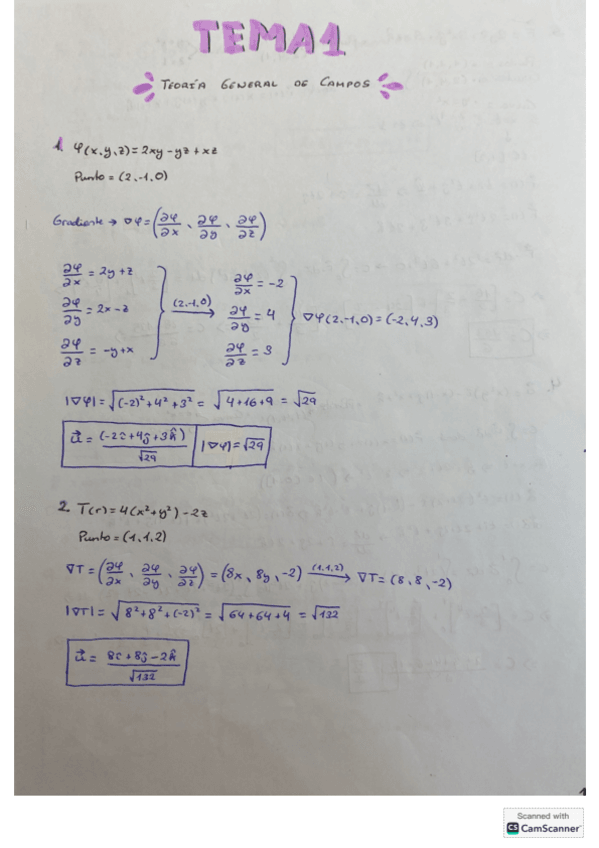 TEMA1
TEORÍA GENERAL DE CAMPOS
1. φ(x,y,z)=2xy-yz+xz
Punto=(2,-1,0)
Gradiente → ∇φ=(∂φ/∂x, ∂φ/∂y, ∂φ/∂z)
∂φ/∂x = 2y+z
∂φ/∂y = 2x-z
∂φ/∂z = -y+x
(2,-1,0) →
∂φ/∂x = -2
∂φ/∂y = 4
∂φ/∂z = 3
∇φ(2,-1,0)=(-2,4,3)
|∇φ|=√((-2)²+4²+3²) = √(4+16+9) = √29
u⃗ = (-2î+4ĵ+3k̂)/√29 | |∇φ|=√29
2. T(r)=4(x²+y²)-2z
Punto=(1,1,2)
∇T=(∂φ/∂x, ∂φ/∂y, ∂φ/∂z)=(8x, 8y, -2) (1,1,2) → ∇T=(8,8,-2)
|∇T|=√(8²+8²+(-2)²) = √(64+64+4) = √132
u⃗ = (8î+8ĵ-2k̂)/√132
Scanned with
CS CamScanner